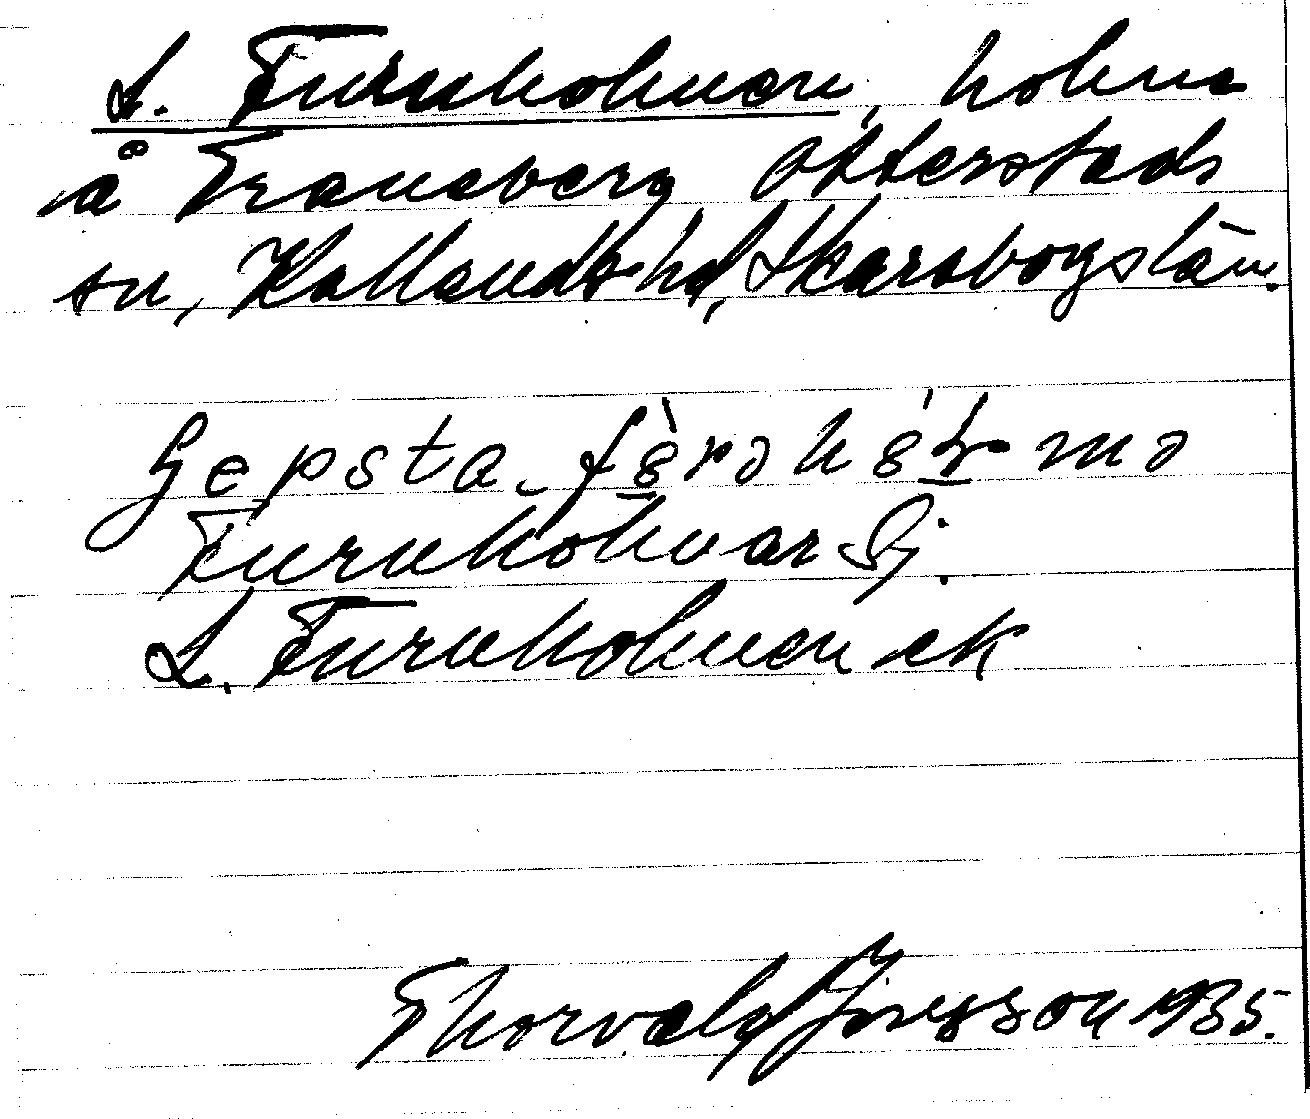 L. Furuholmen, holme
å Traneberg Otterstads
sn, Kållands hd, Skaraborgs län.
Furuholmar Gj.
L. Furuholmen ek
Thorvald Jönsson 1935.